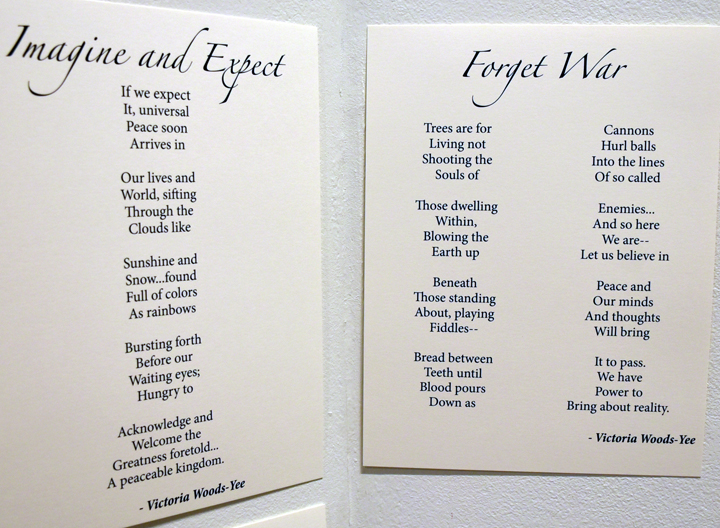 Imagine and Expect
If we expect
It, universal
Peace soon
Arrives in
Our lives and
World, sifting
Through the
Clouds like
Sunshine and
Snow...found
Full of colors
As rainbows
Bursting forth
Before our
Waiting eyes;
Hungry to
Acknowledge and
Welcome the
Greatness foretold...
A peaceable kingdom.
- Victoria Woods-Yee
Forget War
Trees are for
Living not
Shooting the
Souls of
Those dwelling
Within,
Blowing the
Earth up
Beneath
Those standing
About, playing
Fiddles--
Bread between
Teeth until
Blood pours
Down as
Cannons
Hurl balls
Into the lines
Of so called
Enemies...
And so here
We are--
Let us believe in
Peace and
Our minds
And thoughts
Will bring
It to pass.
We have
Power to
Bring about reality.
- Victoria Woods-Yee